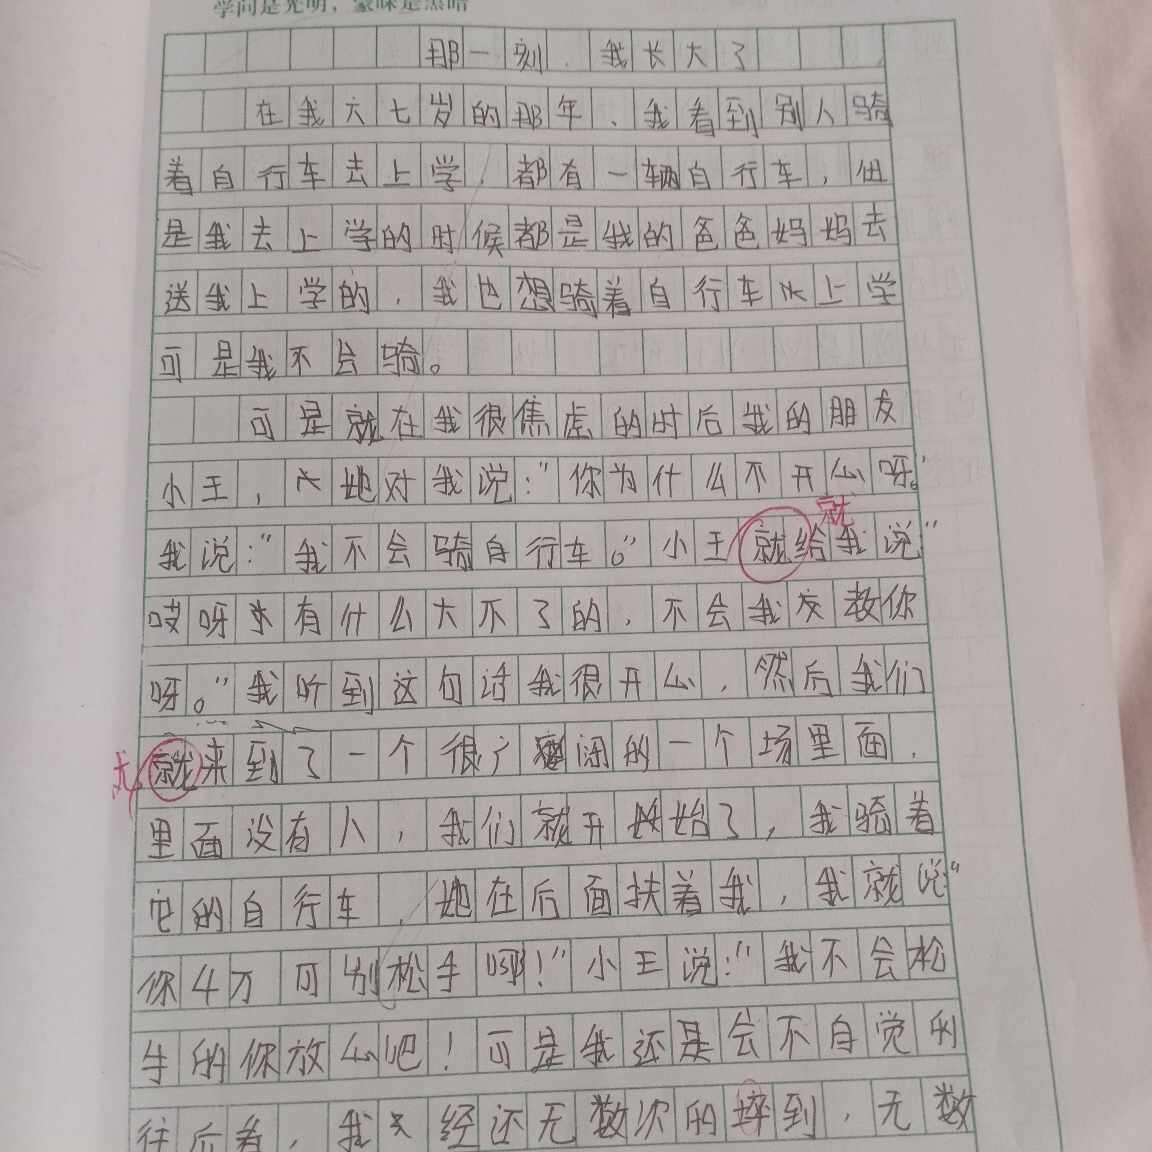 学问是光明，蒙昧是黑暗
那一刻，我长大了
在我六七岁的那年，我看到别人骑
着自行车去上学，都有一辆自行车，但
是我去上学的时候都是我的爸爸妈妈去
送我上学的，我也想骑着自行车上学
可是我不会骑。
可是就在我很焦虑的时后我的朋友
小王，她对我说："你为什么不开心呀。"
我说："我不会骑自行车。"小王就给我说"
就
哎呀有什么大不了的，不会我教你
呀。"我听到这句话我很开心，然后我们
就来到了一个很广阔的一个场里面，
里面没有人，我们就开始了，我骑着
它的自行车，她在后面扶着我，我就说"
你千万可别松手啊！"小王说："我不会松
手的你放心吧！可是我还是会不自觉的
往后看，我经还无数次的摔到，无数